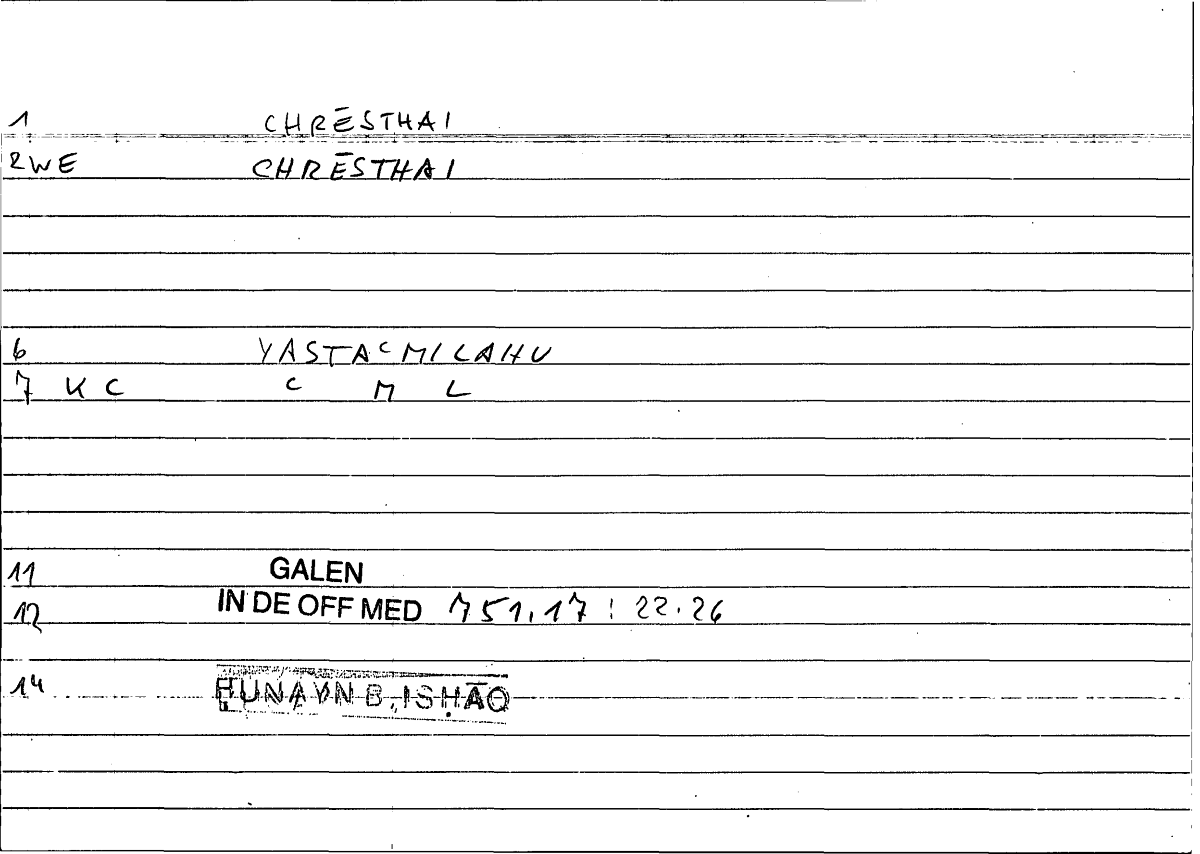 1 CHRĒSTHAI
2WE CHRĒSTHAI
6 YASTAᶜMILAHU
7 KC ᶜ M L
11 GALEN
12 IN DE OFF MED 751.17 : 22.26
14 ḤUNAYN B. ISḤĀQ